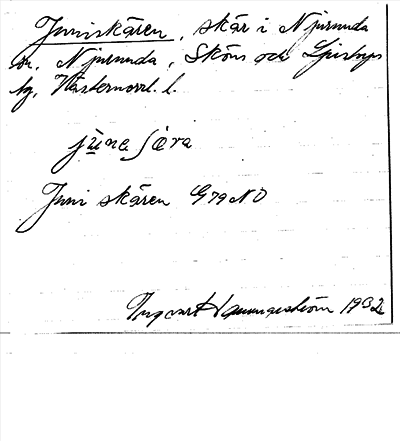 Juniskären, skär i Njurunda
sn, Njurunda, Sköns och Ljustorps
tg, Västernorrl. l.
Juni skären G79 NO
Ingvar Hammarström 1932